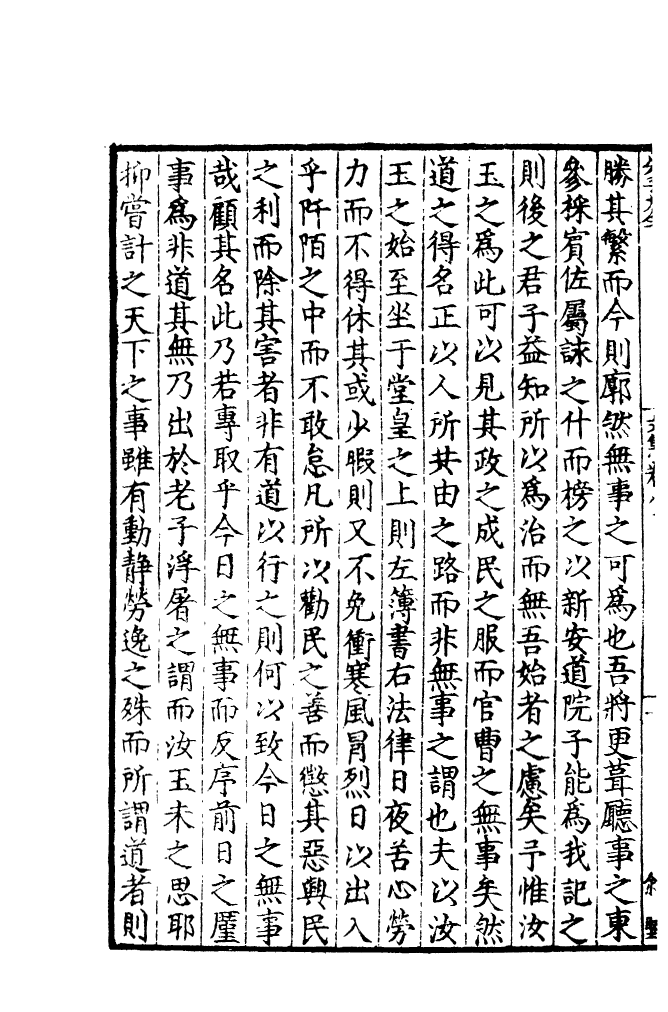 勝其繁而今則廓然無事之可爲也吾將更葺聽事之東
參採賓佐屬諫之什而榜之以新安道院子能爲我記之
則後之君子益知所以爲治而無吾始者之慮矣予惟汝
玉之爲此可以見其政之成民之服而官曹之無事矣然
道之得名正以人所共由之路而非無事之謂也夫以汝
玉之始至坐于堂皇之上則左簿書右法律日夜苦心勞
力而不得休其或少暇則又不免衝寒風冐烈日以出入
乎阡陌之中而不敢怠凡所以勸民之善而懲其惡興民
之利而除其害者非有道以行之則何以致今日之無事
哉顧其名此乃若專取乎今日之無事而反序前日之
事爲非道其無乃出於老子浮屠之謂而汝玉未之思耶
抑嘗計之天下之事雖有動靜勞逸之殊而所謂道者則